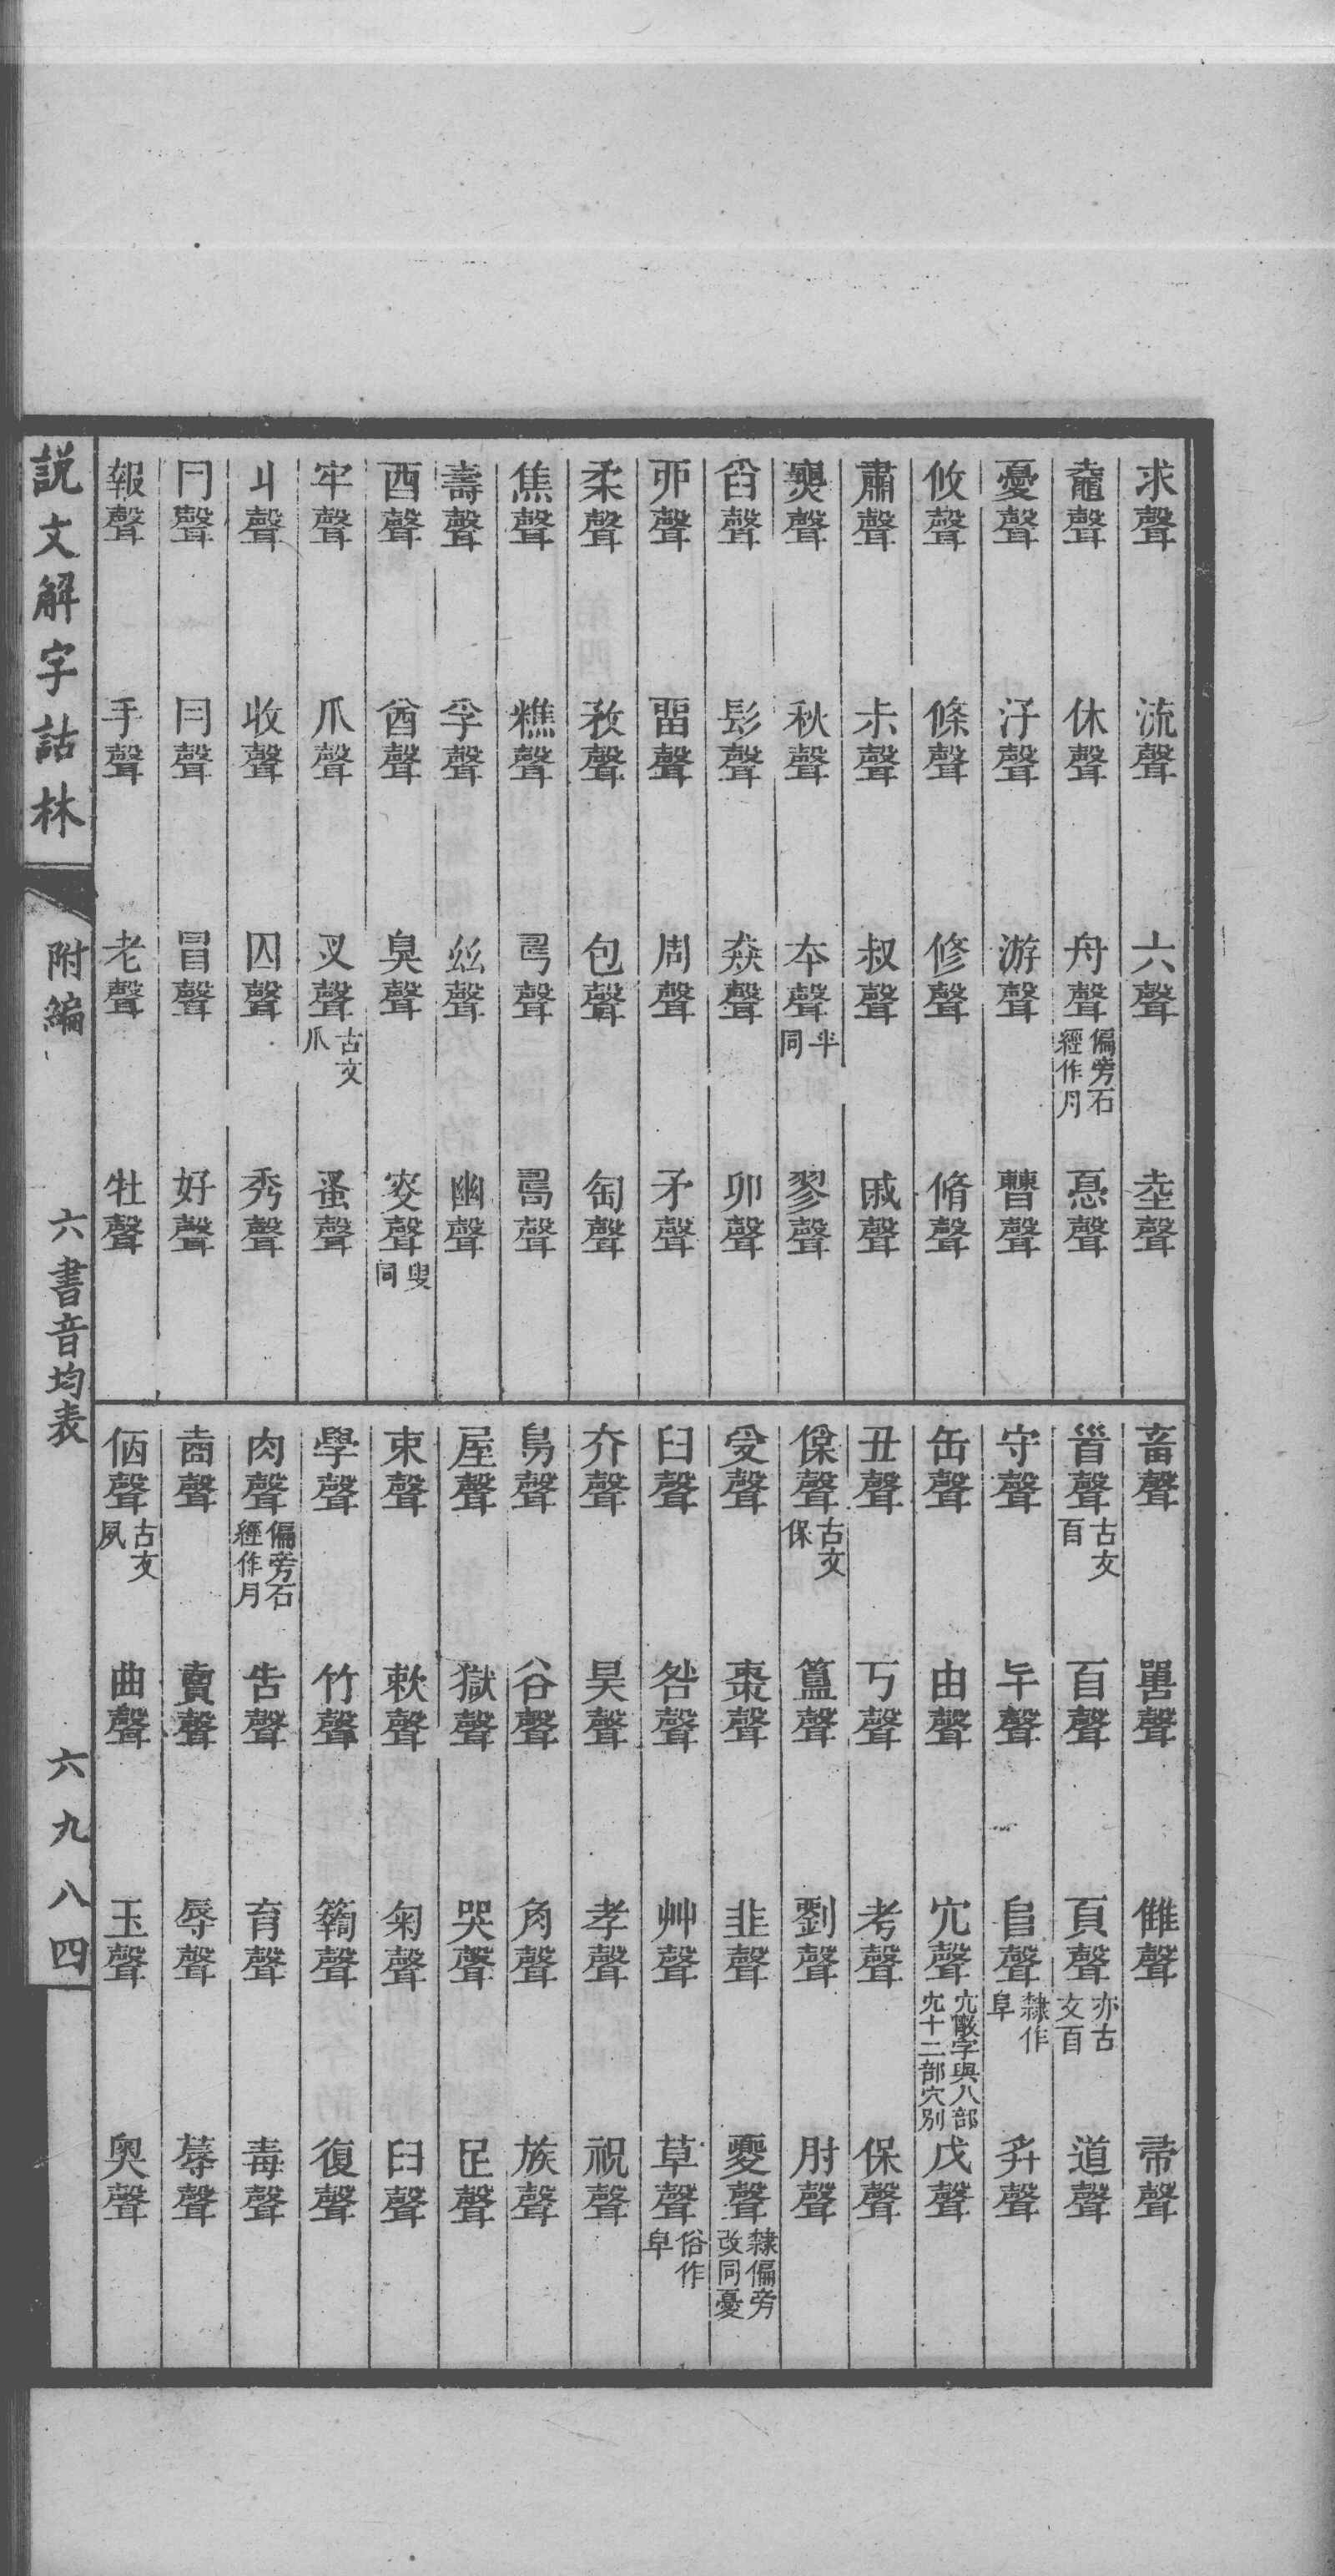 求聲 流聲 六聲 坴聲
鼀聲 休聲 舟聲偏旁石經作月 惪聲
憂聲 汓聲 游聲 曹聲
攸聲 條聲 修聲 脩聲
肅聲 尗聲 叔聲 戚聲
爕聲 秋聲 夲聲半同 翏聲
舀聲 髟聲 猋聲 卯聲
丣聲 畱聲 周聲 矛聲
柔聲 敄聲 包聲 匋聲
焦聲 糕聲 𢎗聲 𠷎聲
壽聲 孚聲 𢆶聲 幽聲
酉聲 酋聲 臭聲 叜聲叟同
牢聲 爪聲 叉聲古文爪 蚤聲
丩聲 收聲 囚聲 秀聲
冃聲 冒聲 好聲
報聲 手聲 老聲 牡聲
畜聲 嘼聲 雔聲 帚聲
𩠐聲古文𦣻 百聲 頁聲亦古文𦣻 道聲
守聲 𠂤聲隸作阜
缶聲 由聲 宂聲宂散字與八部宂十二部穴別 戊聲
丑聲 丂聲 考聲 保聲
𠌶聲古文保 簋聲 劉聲 肘聲
受聲 棗聲 韭聲 夒聲隸偏旁改同憂
臼聲 咎聲 艸聲 草聲俗作皁
夰聲 昊聲 孝聲 祝聲
𦥑聲 谷聲 角聲 族聲
屋聲 獄聲 哭聲 足聲
束聲 欶聲 匊聲 臼聲
學聲 竹聲 籥聲 復聲
肉聲偏旁石經作月 告聲 育聲 毒聲
𡔷聲 賣聲 辱聲 蓐聲
佰聲古文夙 曲聲 玉聲 奥聲
説文解字詁林 附編 六書音均表 六九八四